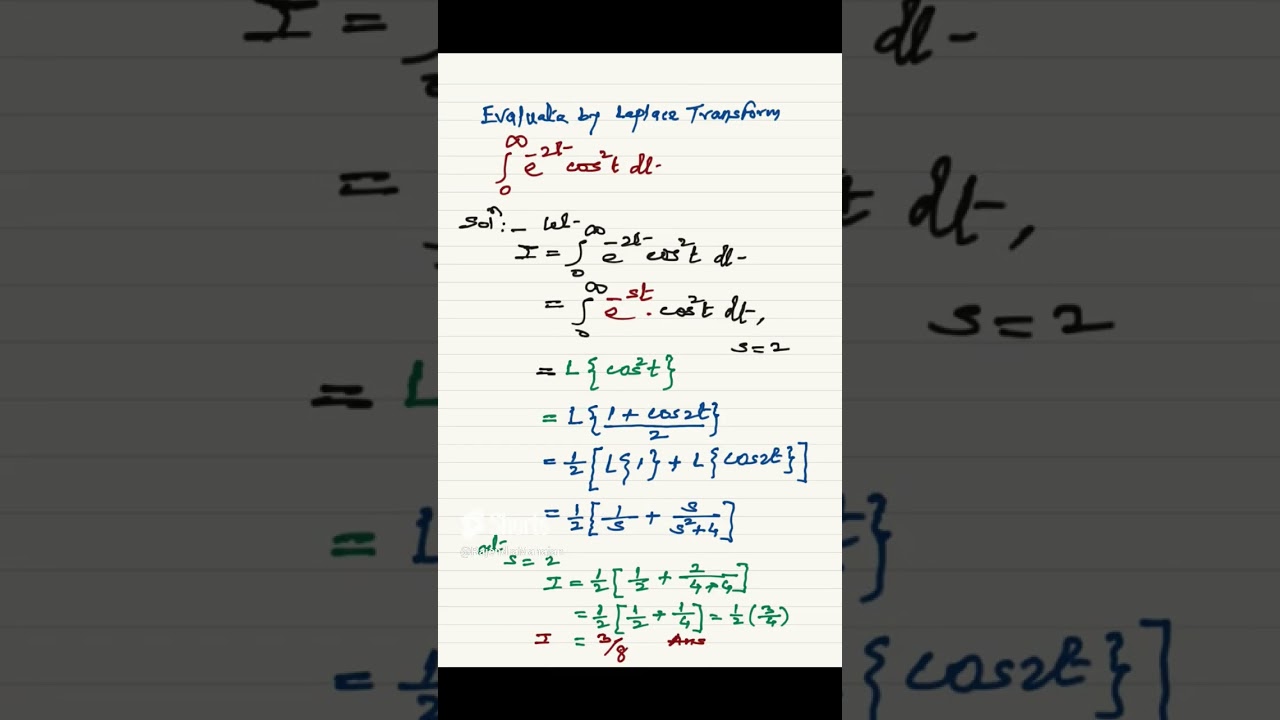 Evaluate by Laplace Transform
∫₀^∞ e^{-2t} cos²t dt
Solⁿ:- Let
I = ∫₀^∞ e^{-2t} cos²t dt
= ∫₀^∞ e^{-st} . cos²t dt,
s = 2
= L{cos²t}
= L{(1 + cos2t)/2}
= 1/2 [L{1} + L{cos2t}]
= 1/2 [1/s + s/(s²+4)]
s = 2
I = 1/2 [1/2 + 2/(4+4)]
= 1/2 [1/2 + 1/4] = 1/2 (3/4)
I = 3/8 Ans